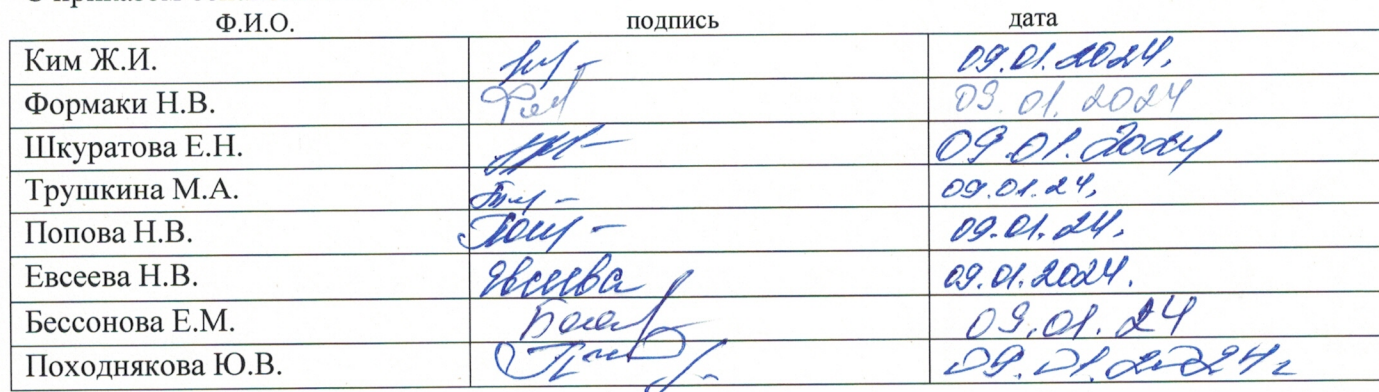 Ф.И.О. подпись дата
Ким Ж.И. 09.01.2024.
Формаки Н.В. 09.01.2024
Шкуратова Е.Н. 09.01.2024
Трушкина М.А. 09.01.24.
Попова Н.В. 09.01.24.
Евсеева Н.В. Евсеева 09.01.2024.
Бессонова Е.М. 09.01.24
Походнякова Ю.В. 09.01.2024г